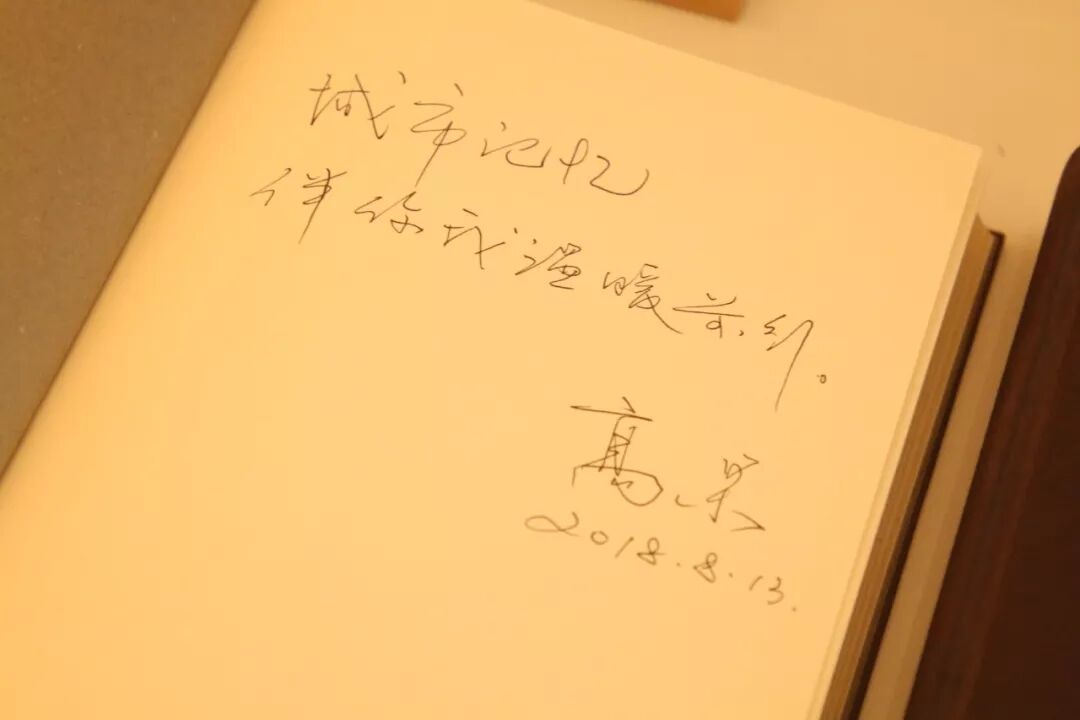 城市记忆
伴你我温暖前行。
高
2018.8.13.